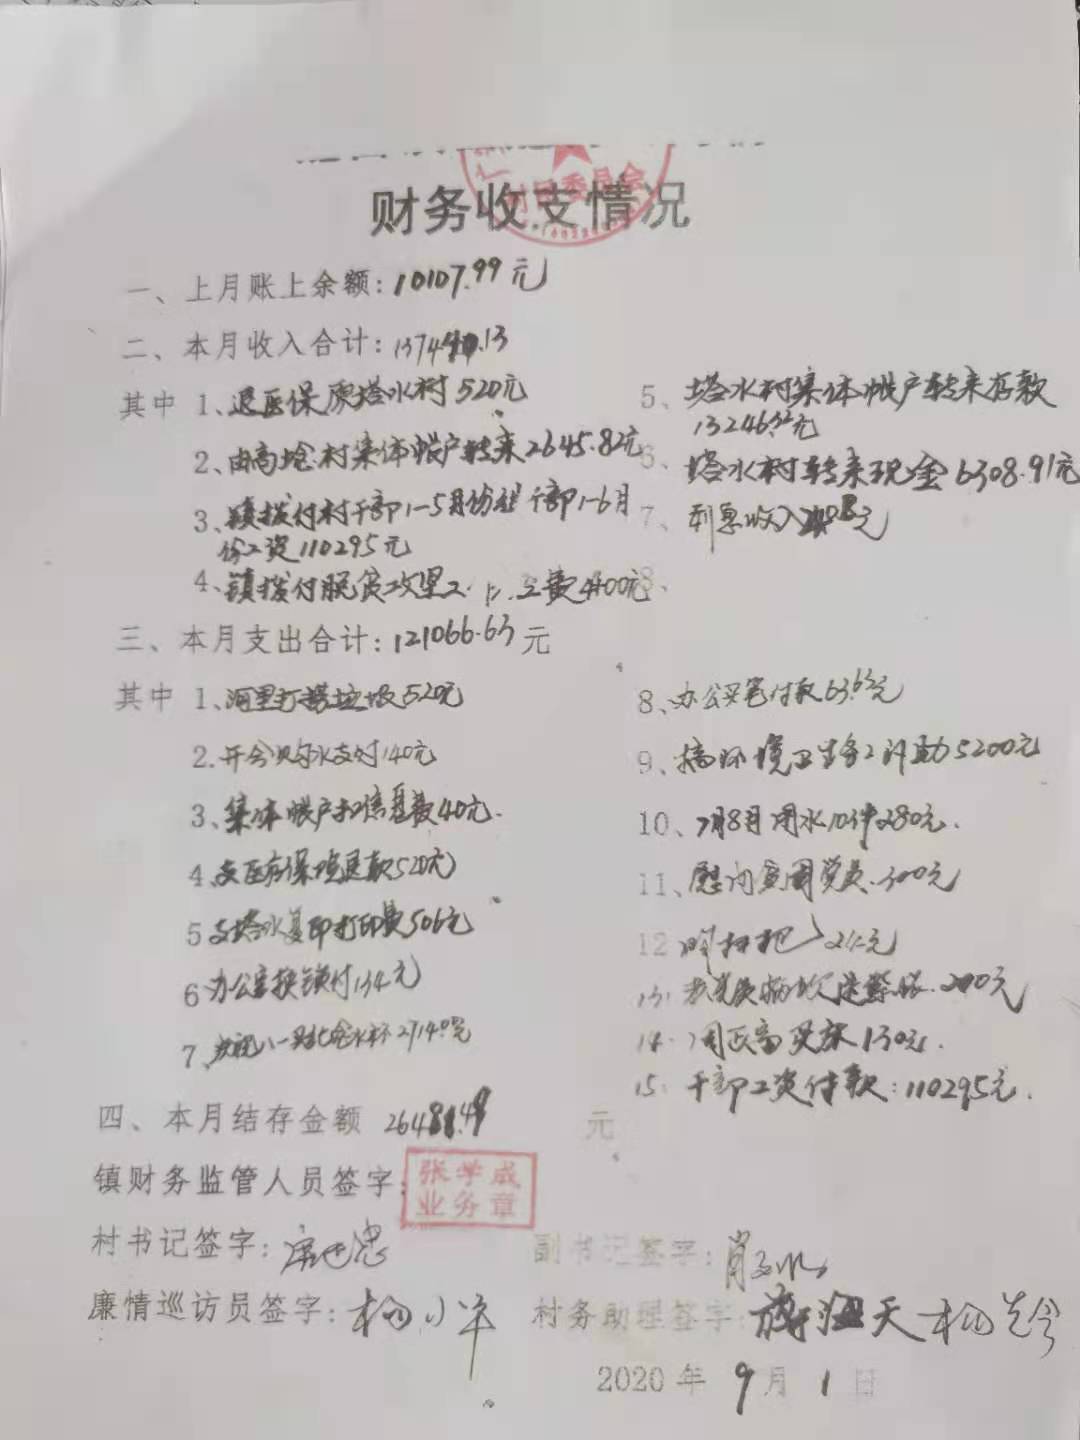 村民委员会
财务收支情况
一、上月账上余额:10107.99元
二、本月收入合计:137440.13
其中 1、退医保原塔水村520元
2、由高垅村集体帐户转来2645.82元
3、镇拨付村干部1-5月份 干部1-6月
份工资110295元
4、镇拨付脱贫攻坚工 费4400元
5、塔水村集体帐户转来存款
13246.32元
6、塔水村转来现金6308.91元
7、利息收入 元
8、
三、本月支出合计:121066.63元
其中 1、河里打捞垃圾520元
2.开会购水支付140元
3、集体帐户扣信息费40元.
4、支医疗保险退款520元
5支塔水复印打印费506元
6办公室换锁付134元
7、庆祝八一 2714.00元
8、办公买笔付款63.63元
9、搞环境卫生务工补助5200元
10、7月8月用水10件280元.
11、慰问贫困党员.300元
12 扫把 24元
13: 200元
14. 130元.
15: 干部工资付款:110295元.
四、本月结存金额 26481.49 元
镇财务监管人员签字:
张学成
业务章
村书记签字:
副书记签字:肖
廉情巡访员签字:杨小平
村务助理签字: 天 杨
2020年9月1日